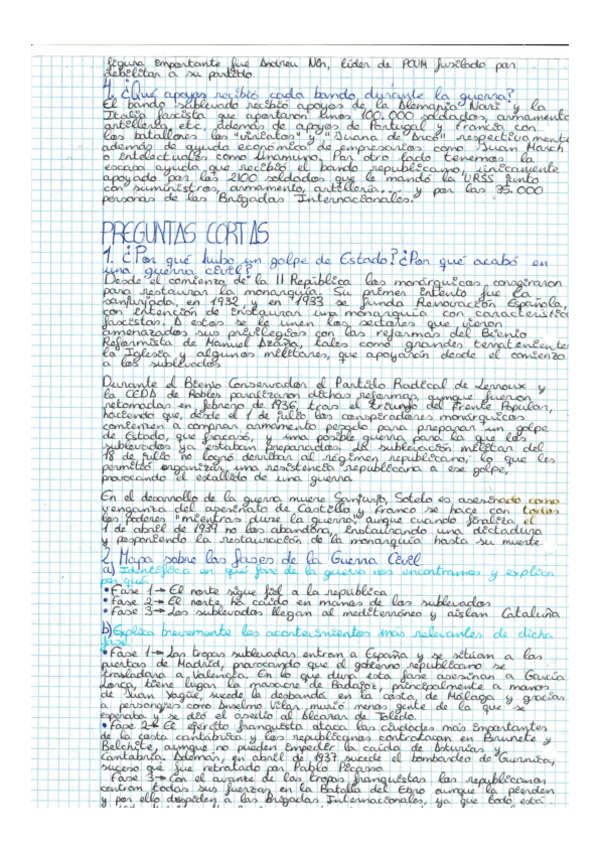 figura importante fue Andreu Nin, líder de POUM fusilado por
debilitar a su partido
4. ¿Qué apoyos recibió cada bando durante la guerra?
El bando sublevado recibió apoyos de la Alemania Nazi y la
Italia fascista que aportaron unos 100.000 soldados, armamento
artillería, etc, además de apoyos de Portugal y Francia con
los batallones los "viriatos" y "Juana de Arco" respectivamente
además de ayuda económica de empresarios como Juan March
o intelectuales como Unamuno. Por otro lado tenemos la
escasa ayuda que recibió el bando republicano, únicamente
apoyado por los 2100 soldados que le mandó la URSS junto
con suministros, armamento, artillería... y por las 35.000
personas de las Brigadas Internacionales.
PREGUNTAS CORTAS
1. ¿Por qué hubo un golpe de Estado? ¿Por qué acabó en
una guerra civil?
Desde el comienzo de la II República los monárquicos conspiraron
para restaurar la monarquía. Su primer intento fue la
sanjurjada, en 1932 y en 1933 se funda Renovación Española,
con intención de instaurar una monarquía con característica
fascistas. A estos se le unen los sectores que vieron
amenazados sus privilegios con las reformas del Bienio
Reformista de Manuel Azaña, tales como grandes terratenientes
la Iglesia y algunos militares, que apoyaron desde el comienzo
a los sublevados
Durante el Bienio Conservador el Partido Radical de Lerroux y
la CEDA de Robles paralizaron dichas reformas, aunque fueron
retomadas en febrero de 1936, tras el triunfo del Frente Popular,
haciendo que, desde el 1 de julio los conspiradores monárquicos
comiencen a comprar armamento pesado para preparar un golpe
de Estado, que fracasó, y una posible guerra para la que los
sublevados ya estaban preparados. La sublevación militar del
18 de julio no logró derribar al régimen republicano, lo que les
permitió organizar una resistencia republicana a ese golpe,
provocando el estallido de una guerra
En el desarrollo de la guerra muere Sanjurjo, Sotelo es asesinado como
venganza del asesinato de Castillo y Franco se hace con todos
los poderes "mientras dure la guerra," aunque cuando finaliza, el
1 de abril de 1939 no los abandona, instaurando una dictadura
y posponiendo la restauración de la monarquía hasta su muerte
2. Mapa sobre las fases de la Guerra Civil
a) Identifica en qué fase de la guerra nos encontramos y explica
por qué
• Fase 1 → El norte sigue fiel a la república
• Fase 2 → El norte ha caído en manos de los sublevados
• Fase 3 → Los sublevados llegan al mediterráneo y aíslan Cataluña
b) Explica brevemente los acontecimientos más relevantes de dicha
fase
• Fase 1 → Las tropas sublevadas entran a España y se sitúan a las
puertas de Madrid, provocando que el gobierno republicano se
trasladara a Valencia. En lo que dura esta fase asesinan a García
Lorca, tiene lugar la masacre de Badajoz, principalmente a manos
de Juan Yagüe, sucede la desbandá en la costa de Málaga y gracias
a personajes como Anselmo Vilar, murió menos gente de la que se
esperaba y se dió el asedio al Alcázar de Toledo.
• Fase 2 → El ejército franquista ataca las ciudades más importantes
de la costa cantábrica y los republicanos contraatacan en Brunete y
Belchite, aunque no pueden impedir la caída de Asturias y
Cantabria. Además, en abril de 1937 sucede el bombardeo de Guernica,
suceso que fue retratado por Pablo Picasso
Fase 3 → Con el avance de las tropas franquistas los republicanos
centran todas sus fuerzas en la Batalla del Ebro aunque la pierden
y por ello despiden a las Brigadas Internacionales, ya que todo está